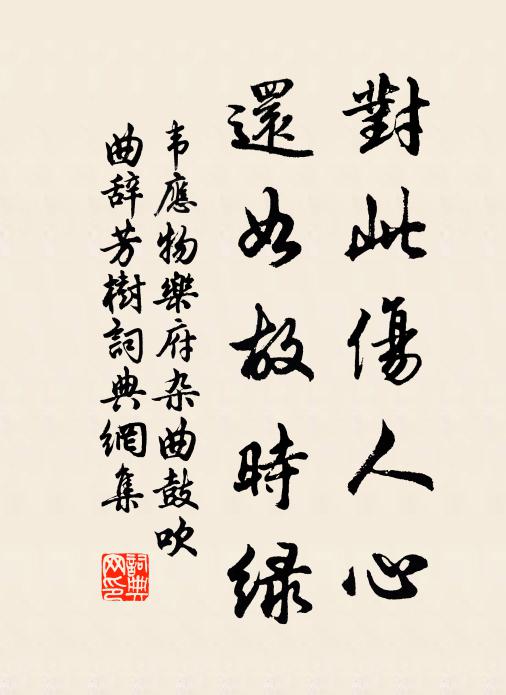 對此傷人心
還如故時绿
韦應物樂府杂曲鼓吹
曲辞芳樹詞典網集
詞典网印